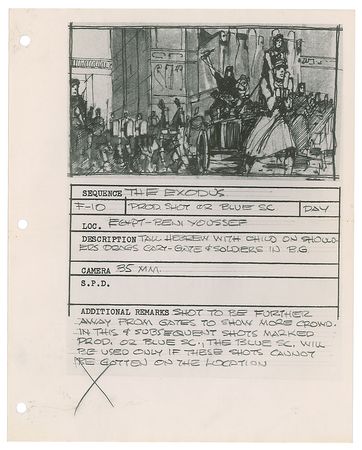 SEQUENCE THE EXODUS
F-10 PROD. SHOT OR BLUE SC. DAY
LOC. EGYPT-BENI YOUSSEF
DESCRIPTION TALL HEBREW WITH CHILD ON SHOULD-
ERS DRAGS CART-GATE & SOLDIERS IN B.G.
CAMERA 35 MM.
S.P.D.
ADDITIONAL REMARKS SHOT TO BE FURTHER
AWAY FROM GATES TO SHOW MORE CROWD.
IN THIS & SUBSEQUENT SHOTS MARKED
PROD. OR BLUE SC., THE BLUE SC. WILL
BE USED ONLY IF THESE SHOTS CANNOT
BE GOTTEN ON THE LOCATION